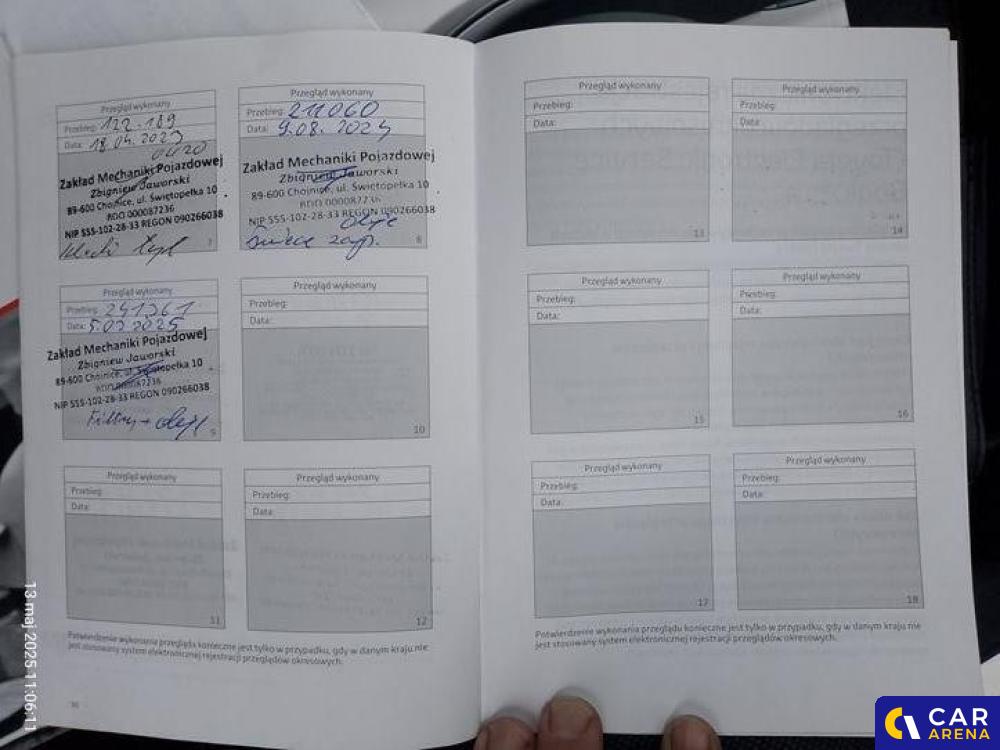 Przegląd wykonany
Przebieg: 122.189
Data: 18.04.2023
Zakład Mechaniki Pojazdowej
Zbigniew Jaworski
89-600 Chojnice, ul. Świętopełka 10
BDO 000087236
NIP 555-102-28-33 REGON 090266038
7
Przegląd wykonany
Przebieg: 211060
Data: 9.08. 2024
Zakład Mechaniki Pojazdowej
Zbigniew Jaworski
89-600 Chojnice, ul. Świętopełka 10
BDO 000087236
NIP 555-102-28-33 REGON 090266038
olej
Świece zap.
8
Przegląd wykonany
Przebieg: 241361
Data: 5.02.2025
Zakład Mechaniki Pojazdowej
Zbigniew Jaworski
89-600 Chojnice, ul. Świętopełka 10
BDO 000087236
NIP 555-102-28-33 REGON 090266038
Filtry + olej
9
Przegląd wykonany
Przebieg:
Data:
10
Przegląd wykonany
Przebieg:
Data:
11
Przegląd wykonany
Przebieg:
Data:
12
Potwierdzenie wykonania przeglądu konieczne jest tylko w przypadku, gdy w danym kraju nie
jest stosowany system elektronicznej rejestracji przeglądów okresowych.
Przegląd wykonany
Przebieg:
Data:
13
Przegląd wykonany
Przebieg:
Data:
14
Przegląd wykonany
Przebieg:
Data:
15
Przegląd wykonany
Przebieg:
Data:
16
Przegląd wykonany
Przebieg:
Data:
17
Przegląd wykonany
Przebieg:
Data:
18
Potwierdzenie wykonania przeglądu konieczne jest tylko w przypadku, gdy w danym kraju nie
jest stosowany system elektronicznej rejestracji przeglądów okresowych.
13 maj 2025 11:06:11
CAR
ARENA